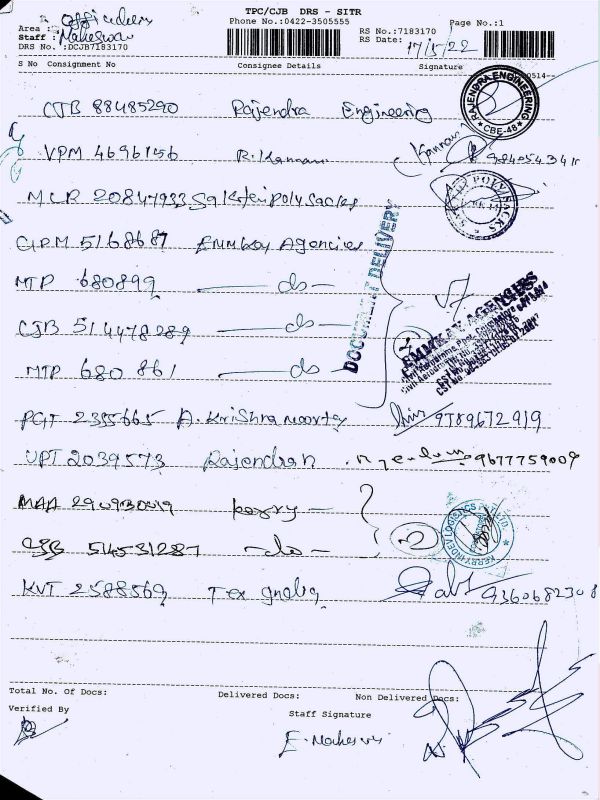 TPC/CJB DRS - SITR
Phone No.:0422-3505555
Page No.:1
Area :
Staff : Maheswari
DRS No. :DCJB7183170
RS No.:7183170
RS Date: 17/5/22
S No Consignment No Consignee Details Signature
CJB 88485290 Rajendra Engineering
RAJENDRA ENGINEERING
CBE-48
VPM 4696156 R. Kannan Kannan
MCR 20847933 Sakthi Poly Sacks
POLY SACKS
GPM 5168687 Emmkay Agencies
DOCUMENT DELIVERY
MTP 680899 do
CJB 514478289 do
EMMKAY AGENCIES
MTP 680861 do
PGT 2355665 A. Krishnamoorthy 9789672919
UPT 2039573 Rajendran 9677759009
MAA
CJB 514531287 do
KERRY INDEV LOGISTICS PVT LTD
KVT 2588569 Tex India 9360682308
Total No. Of Docs: Delivered Docs: Non Delivered Docs:
Verified By
Staff Signature
E. Maheswari